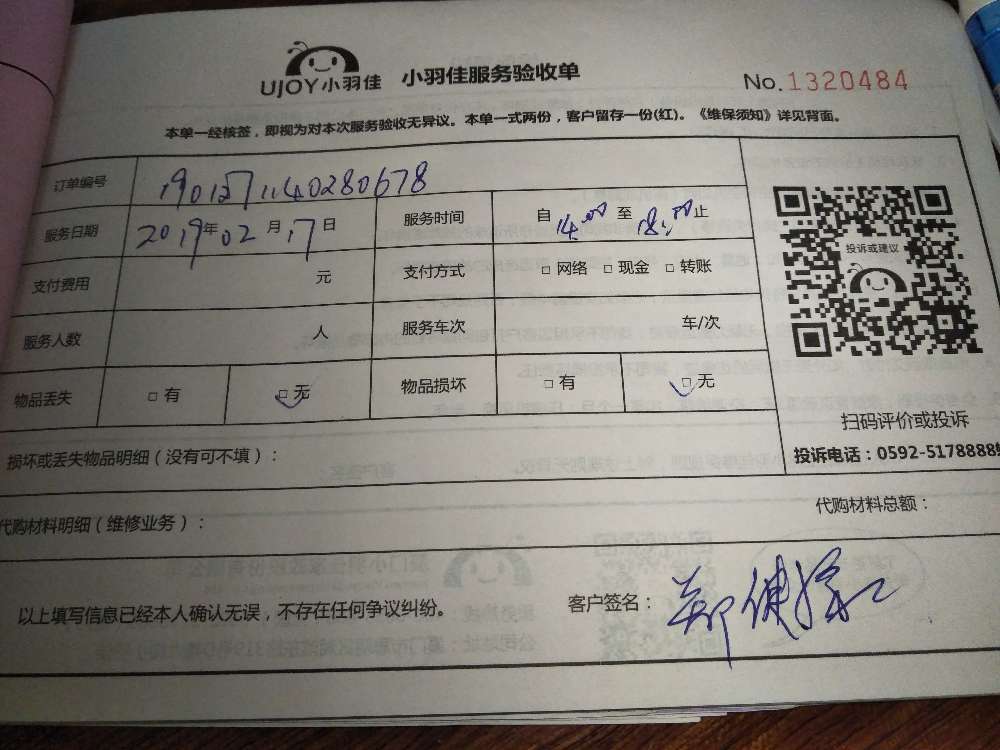 UJOY小羽佳 小羽佳服务验收单 No.1320484
本单一经核签，即视为对本次服务验收无异议。本单一式两份，客户留存一份(红)。《维保须知》详见背面。
订单编号 1901271140280678
服务日期 2019年02月17日 服务时间 自14:00至18:00止
支付费用 元 支付方式 □网络 □现金 □转账
服务人数 人 服务车次 车/次
物品丢失 □有 □无 物品损坏 □有 □无
投诉或建议
扫码评价或投诉
投诉电话：0592-5178888
损坏或丢失物品明细（没有可不填）：
代购材料明细（维修业务）：
代购材料总额：
以上填写信息已经本人确认无误，不存在任何争议纠纷。 客户签名：